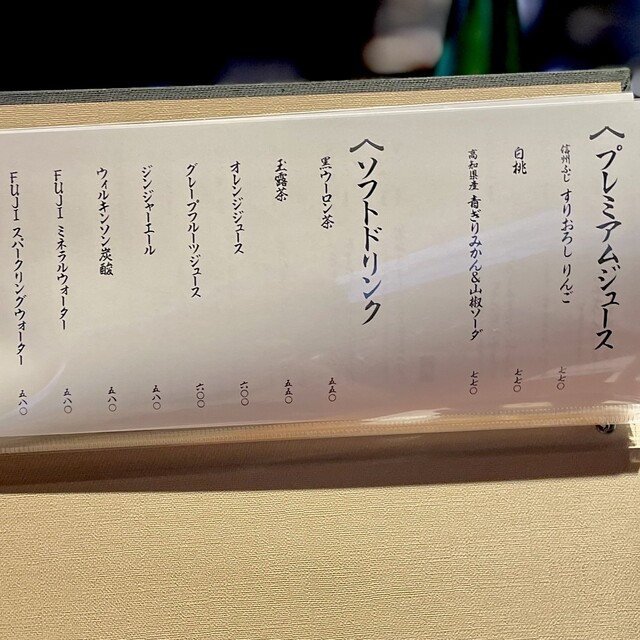 〈プレミアムジュース
信州ふじ すりおろし りんご 七七〇
白桃 七七〇
高知県産 青ぎりみかん&山椒ソーダ 七七〇
〈ソフトドリンク
黒ウーロン茶 五五〇
玉露茶 五五〇
オレンジジュース 六〇〇
グレープフルーツジュース 六〇〇
ジンジャーエール 五八〇
ウィルキンソン炭酸 五八〇
FUJI ミネラルウォーター 五八〇
FUJI スパークリングウォーター 五八〇